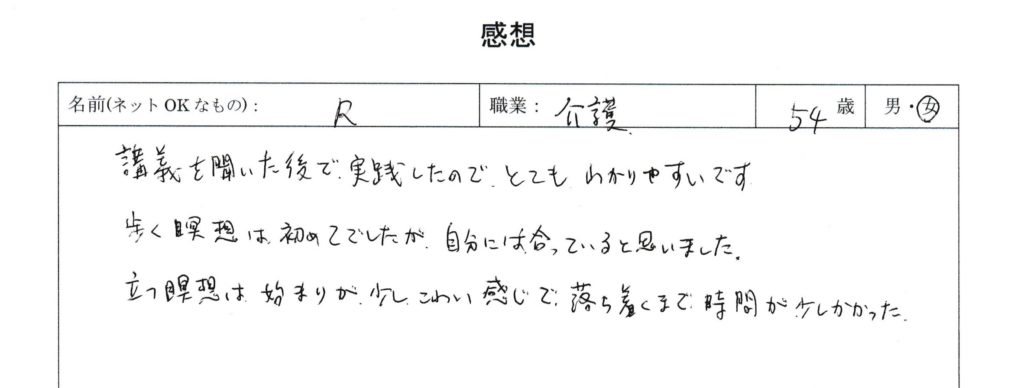 感想
名前(ネットOKなもの): R 職業: 介護 54 歳 男・女
講義を聞いた後で、実践したので、とても わかりやすいです
歩く瞑想は、初めてでしたが、自分には合っていると思いました。
立つ瞑想は、始まりが、少し、こわい感じで、落ち着くまで、時間が、少しかかった。